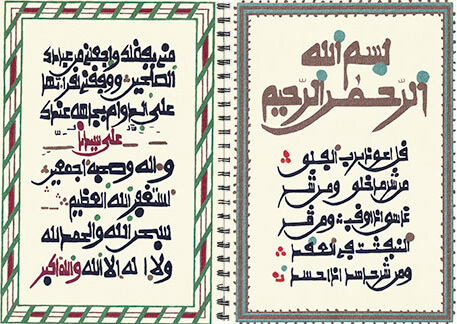 بسم الله
الرحمن الرحيم
قل اعوذ برب الفلق
من شر ما خلق ومن شر
غاسق اذا وقب ومن شر
النفثت في العقد
ومن شر حاسد اذا حسد
مني بفضلك واجعلني من عبادك
الصلحين ووفقني لقراءتها
على الدوام بجاهه عندك
على سيدنا
وءاله وصحبه اجمعين
نستغفر الله العظيم
سبحن الله والحمد لله
ولا اله الا الله والله اكبر